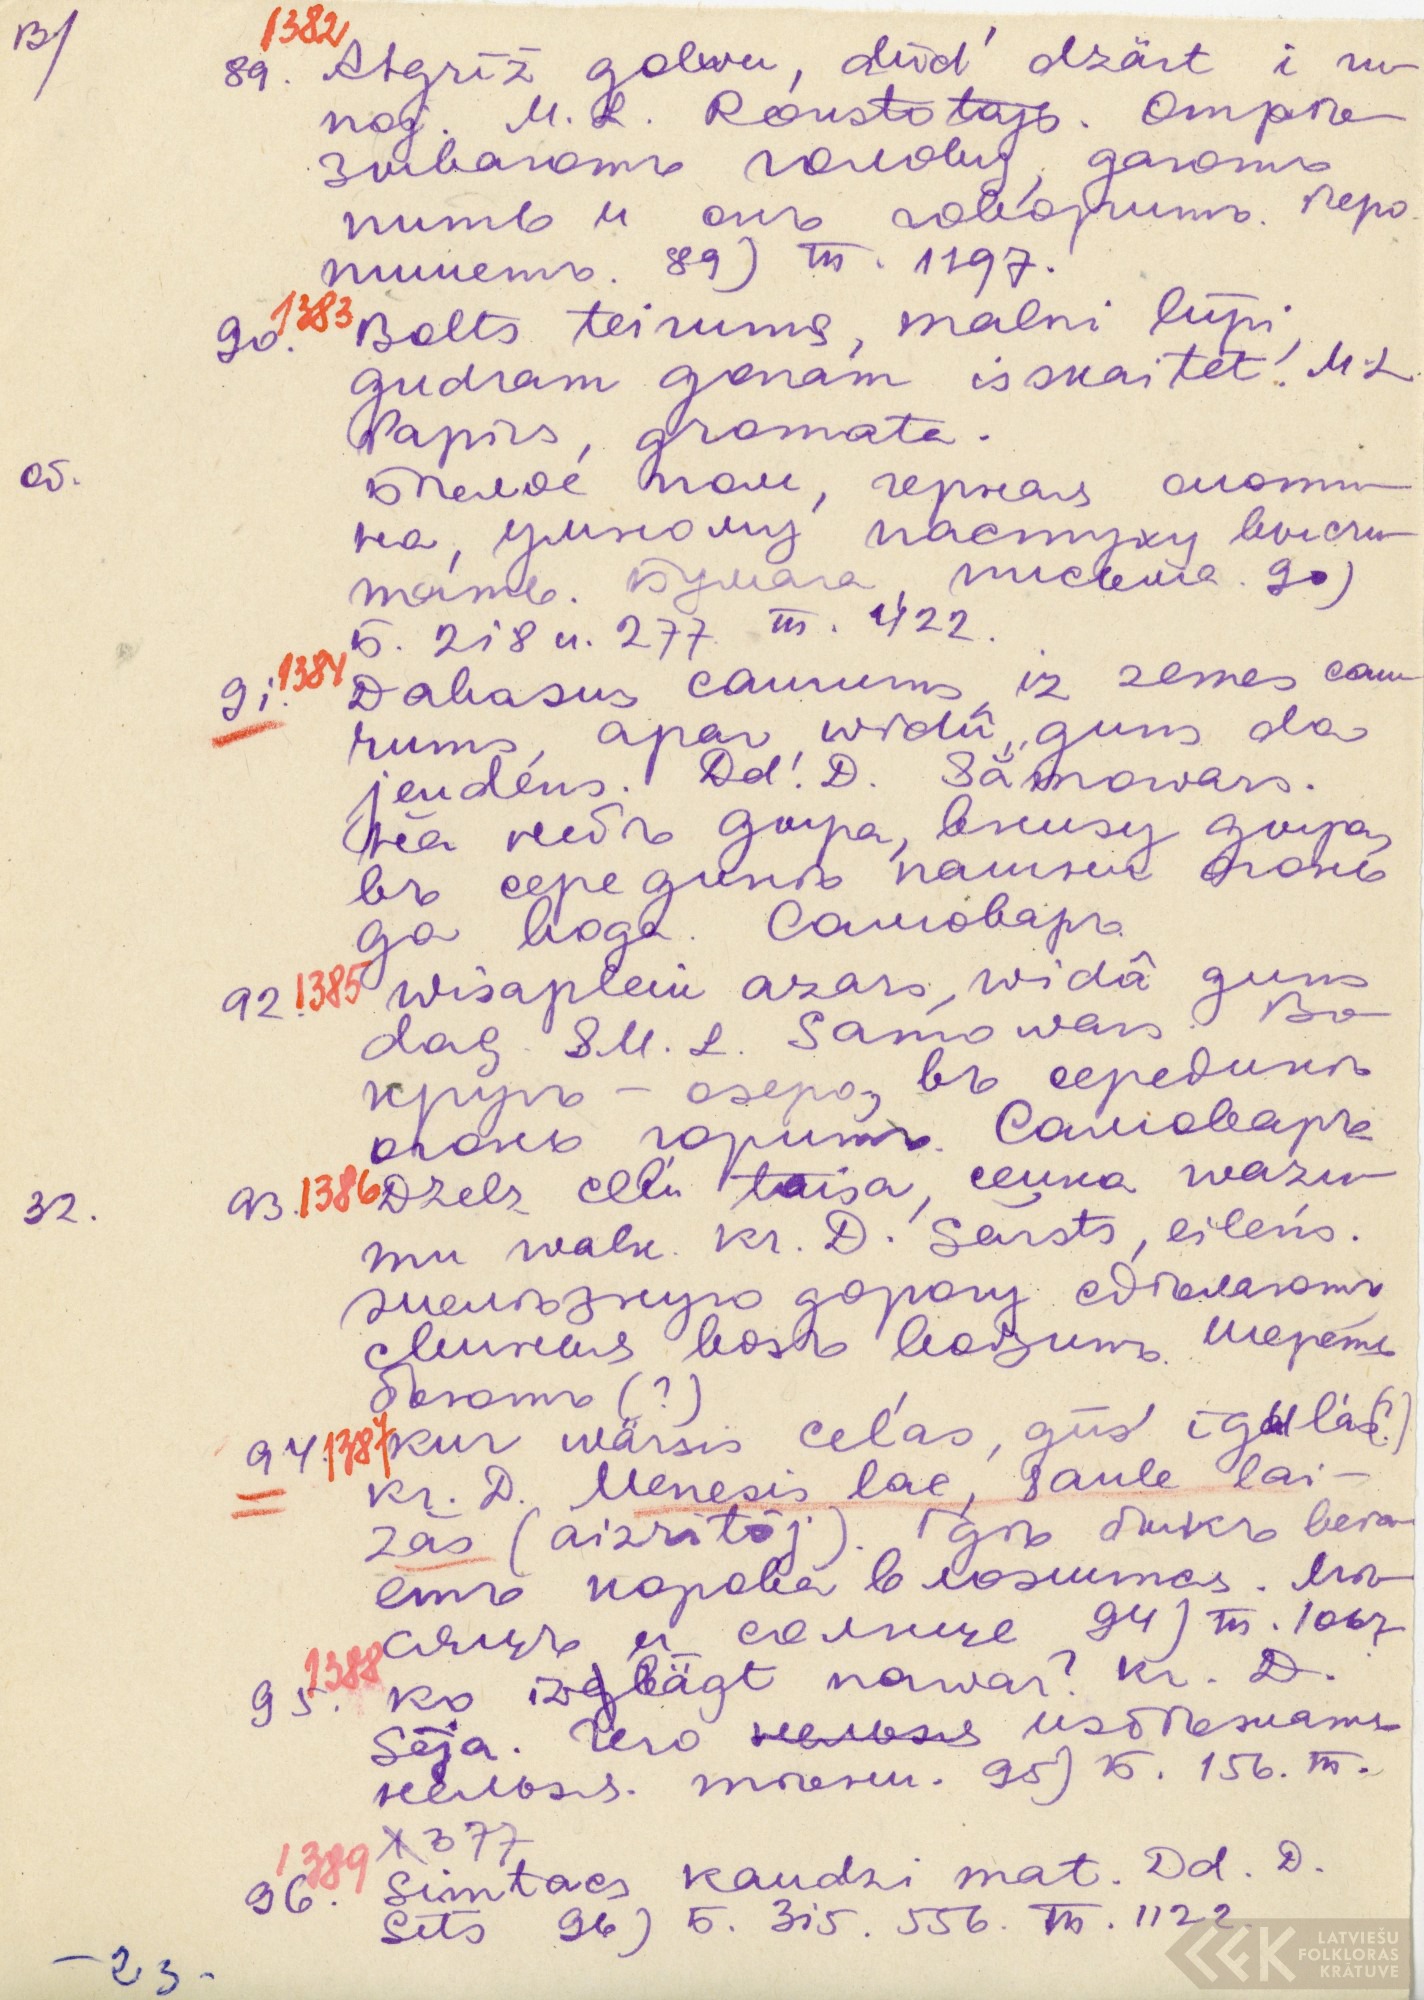 B/
1382
89. Atgrīž golwu, dūd' dzärt i ru-
noj. M. L. Rakstotajs. Отрѣ-
зываютъ голову, даютъ
пить и онъ говоритъ. Перо.
пишетъ. 89) III. 1197.
1383
90. Bolts teirums, malni lūpi,
gudram gonam isskaitet! M. L.
Papirs, gromata.
об.
Бѣлое поле, черная скоти-
на, умному пастуху высчи-
тать. Бумага, письмо. 90)
Б. 218 и. 277 III. 422.
1384
91. Dabasus caurums, iz zemes cau-
rums, apar widû guns da
jeudéns. Dd! D. Sämowars.
На небѣ дыра, внизу дыра,
въ серединѣ пашни огонь
да вода. Самоваръ
1385
92. wisapleik azars, widâ guns
dag. SM. L. Samowars. Во-
кругъ – озеро, въ серединѣ
огонь горитъ. Самоваръ
32.
1386
93. Dzelz celu taisa, ceuka wazu-
mu walk. kr. D. Sarsts, eilens.
желѣзную дорогу сдѣлаютъ
свинья возъ возитъ.
(?)
1387
94. kur wärsis celas, gūs' igulás(?)
kr. D. Menesis lac, saule lai-
zás (aizritōj). Гдѣ быкъ вста-
етъ корова вложится. Мѣ-
сяцъ и солнце 94) III. 1067
1388
95. ko izglägt nawar? kr. D.
Sēja. Чего нельзя избѣжать
нельзя. тѣни. 95) Б. 156. III.
X 377
1389
96. Simtacs kaudzi mat. Dd. D.
Sits 96) Б. 315. 556. III. 1122.
– 23 –
LATVIEŠU
FOLKLORAS
KRĀTUVE